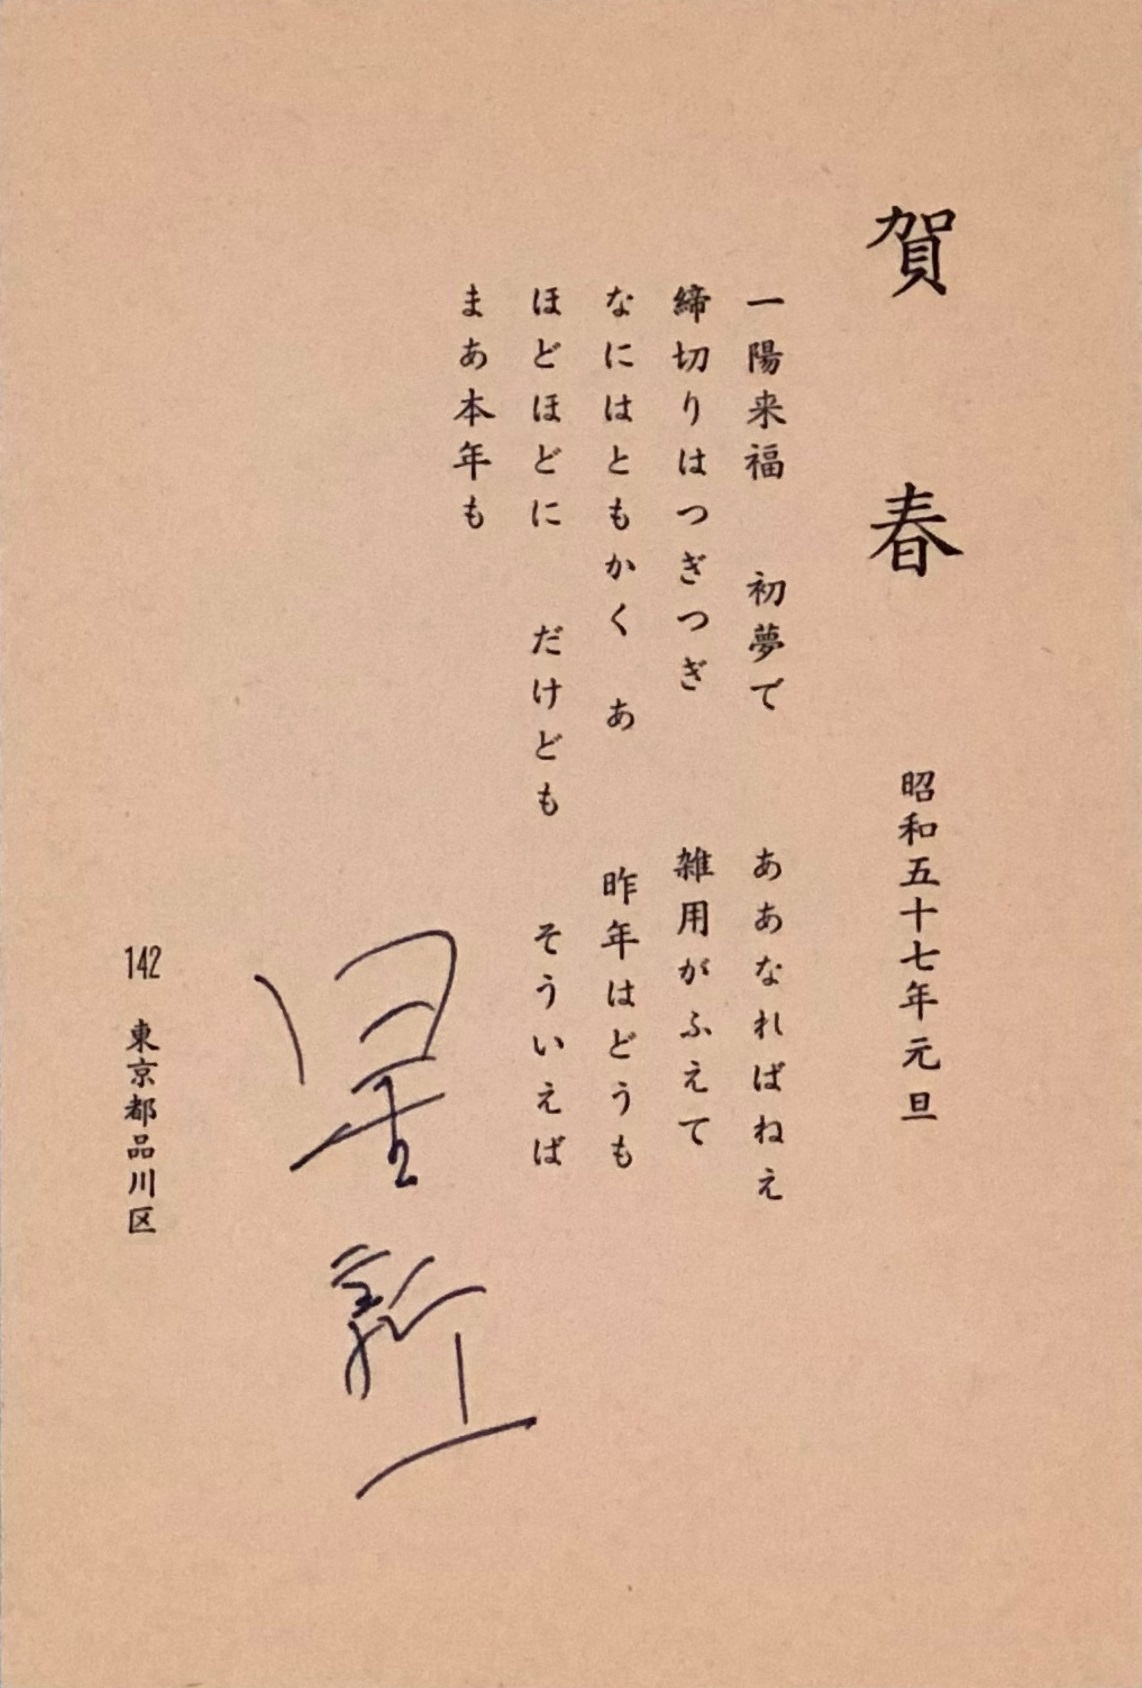 賀春　昭和五十七年元旦
一陽来福　初夢で　ああなればねえ
締切りはつぎつぎ　雑用がふえて
なにはともかく　あ　昨年はどうも
ほどほどに　だけども　そういえば
まあ本年も
星新一
142　東京都品川区